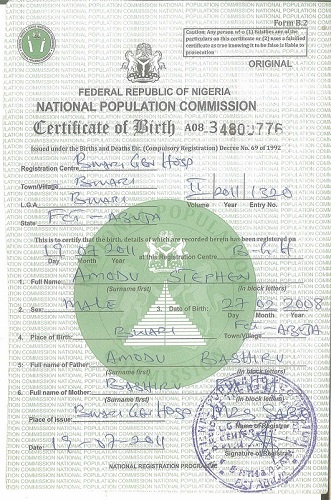 Form B.2
Caution: Any person of o (1) falsifies any of the
particulars on this certificate or (2) uses a falsified
certificate as true knowing it to be false is liable to
prosecution
ORIGINAL
FEDERAL REPUBLIC OF NIGERIA
NATIONAL POPULATION COMMISSION
Certificate of Birth A08 34800776
Issued under the Births and Deaths Etc. (Compulsory Registration) Decree No. 69 of 1992
Registration Centre Bwari Gen Hosp
Town/Village Bwari II 2011 1320
L.G.A Bwari Volume Year Entry No.
State FCT - ABUJA
This is to certify that the birth, details of which are recorded herein has been registered on
19 07 2011 at this Registration Centre B.G.H
Day Month Year
1. Full Name: AMODU STEPHEN
(Surname first) (In block letters)
2. Sex: MALE 3. Date of Birth: 27 02 2008
Day Month Year
4. Place of Birth: BWARI Town/Village FCT-ABUJA
5. Full name of Father: AMODU BASHIRU
(Surname first) (In block letters)
6. Full name of Mother: BASHIRU
(Surname first) (In block letters)
Place of Issue: Bwari Gen Hosp
Name of Registrar
Date: 19-07-2011
Signature of Registrar
NATIONAL REGISTRATION PROGRAMME